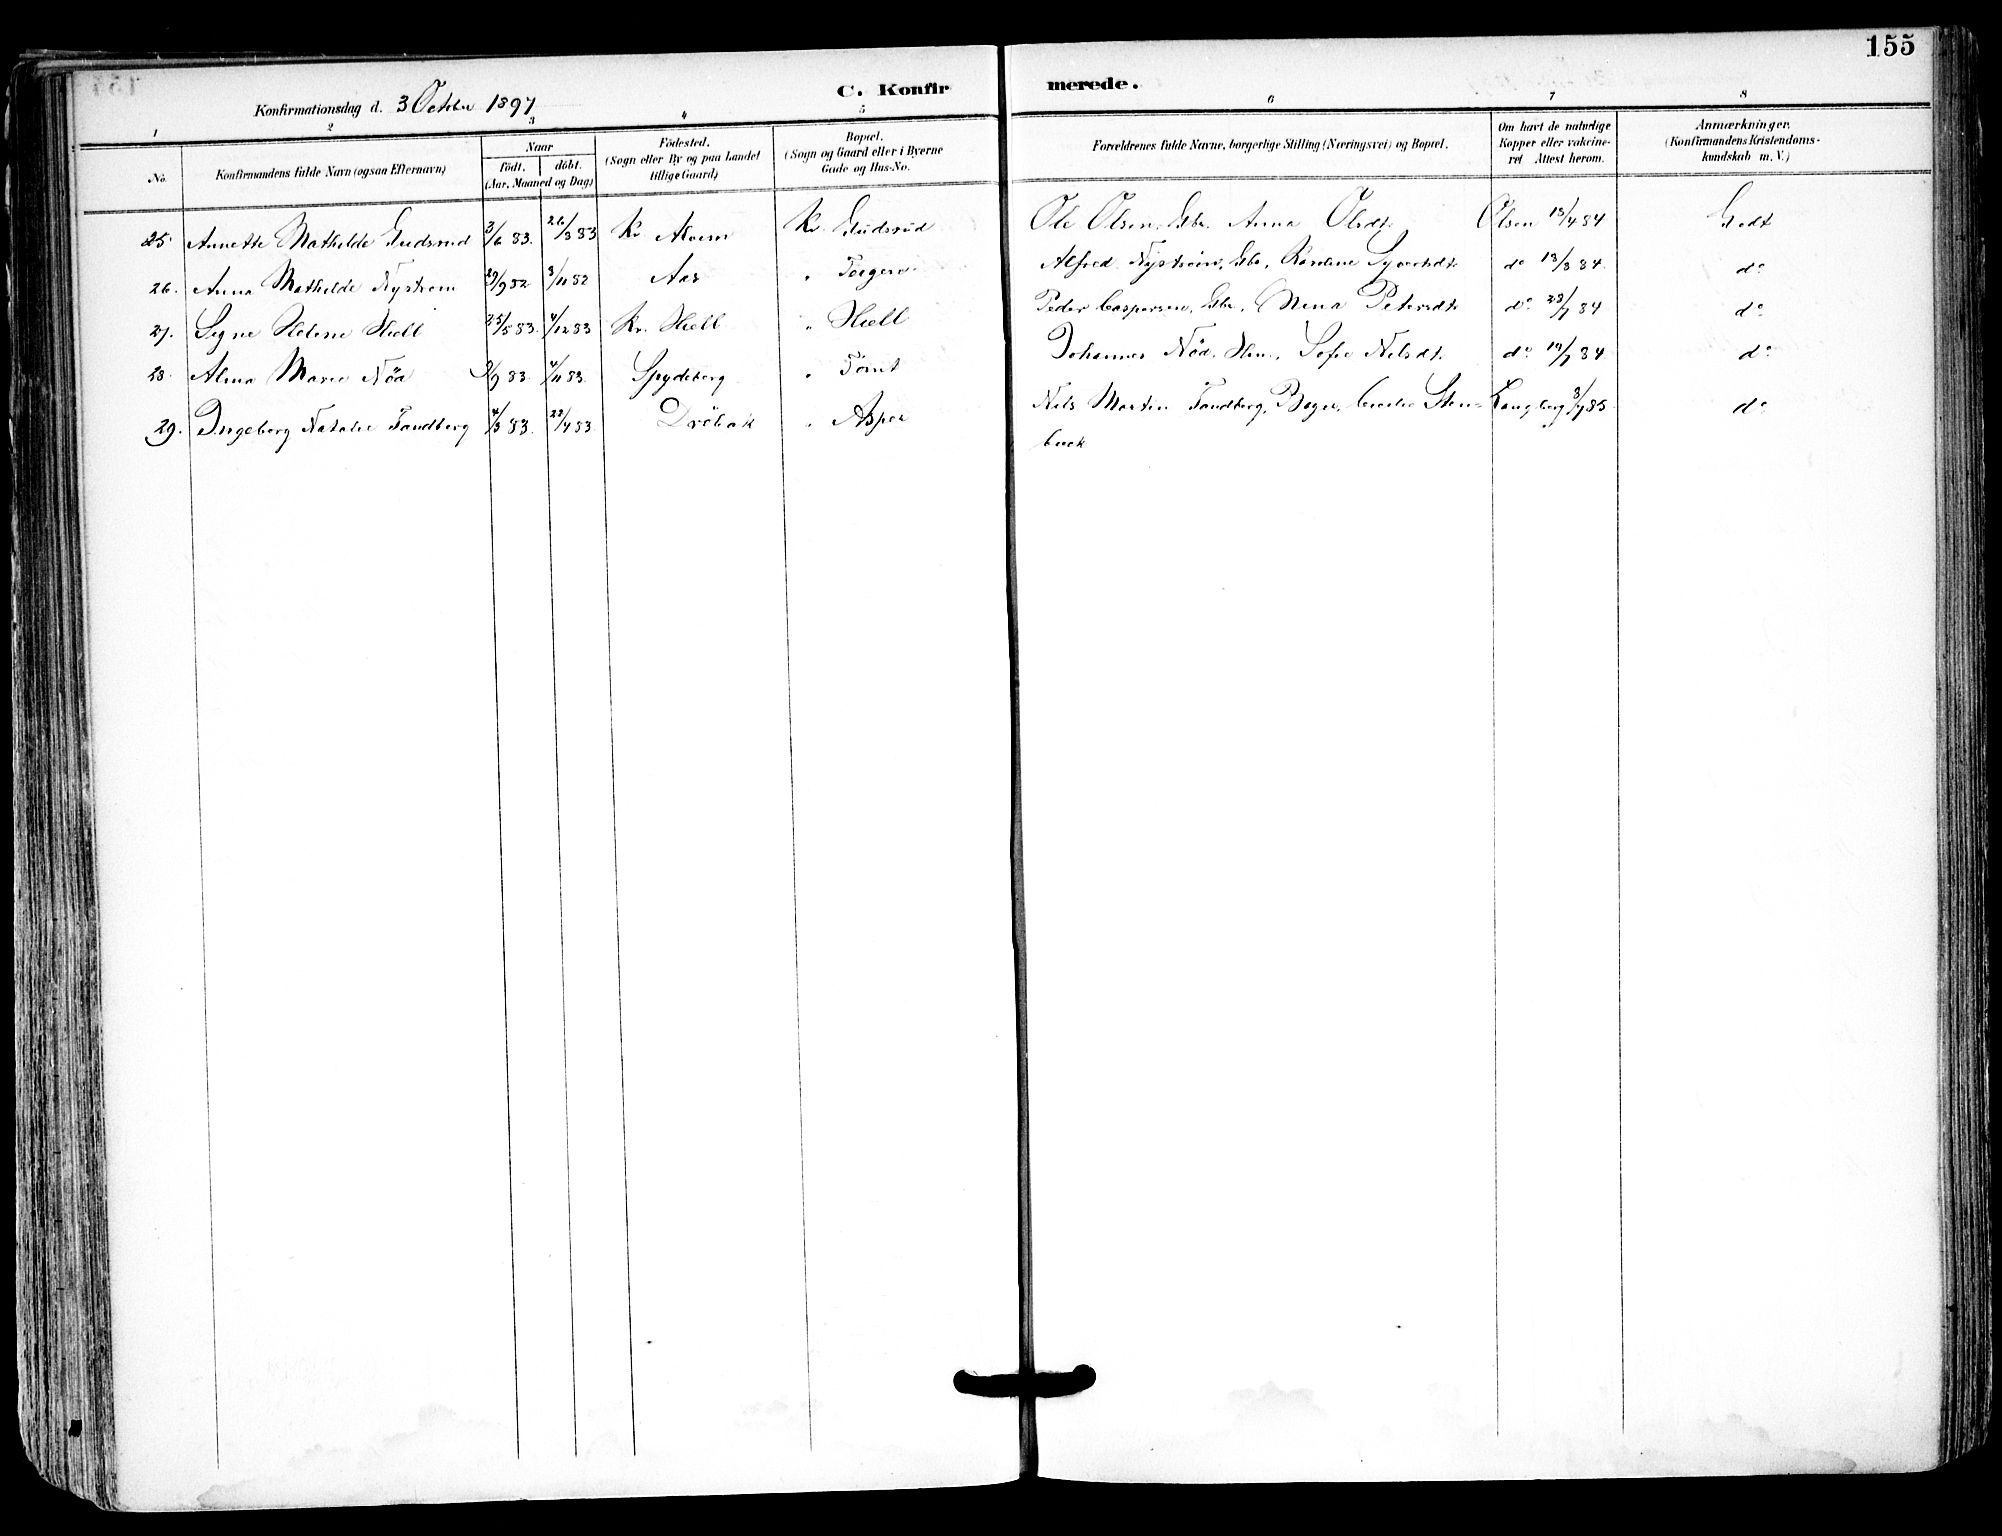 155
C. Konfir merede.
Konfirmationsdag d. 3 October 1897
1 2 3 4 5 6 7 8
No. Konfirmandens fulde Navn (ogsaa Efternavn) Naar födt. döbt. (Aar, Maaned og Dag) Födested. (Sogn eller By og paa Landet tillige Gaard) Bopæl. (Sogn og Gaard eller i Byerne Gade og Hus-No. Forældrenes fulde Navne, borgerlige Stilling (Næringsvei) og Bopæl. Om havt de naturlige Kopper eller vakcineret Attest herom. Anmærkninger. (Konfirmandens Kristendomskundskab m. V.)
25. Annette Mathilde Gudsrud 3/6 83. 26/8 83 Kr. Kr. Gudsrud Ole Olsen, Gbr. Anna Olsdt. Olsen 13/4 84 Godt
26. Anna Mathilde Nyström 29/9 82 3/11 82 Aas " Alfred Nyström, Gbr. Karoline Syvertsdt. do 13/8 84. do
27. Signe Helene Hiell 25/5 83. 4/12 83 Kr. Hiell " Hiell Peder Caspersen, Gbr. Nina Petersdt. do 23/7 84 do
28. Alma Marie Nöd 9/9 83. 4/11 83. Spydeberg " Tomt Johannes Nöd. Sofie Nilsdt. do 19/7 84 do
29. Ingeborg Natalie Tandberg 4/3 83. 22/4 83. Dröbak " Asper Nils Martin Tandberg, Bager, Sten- Langberg 3/7 85. do
back